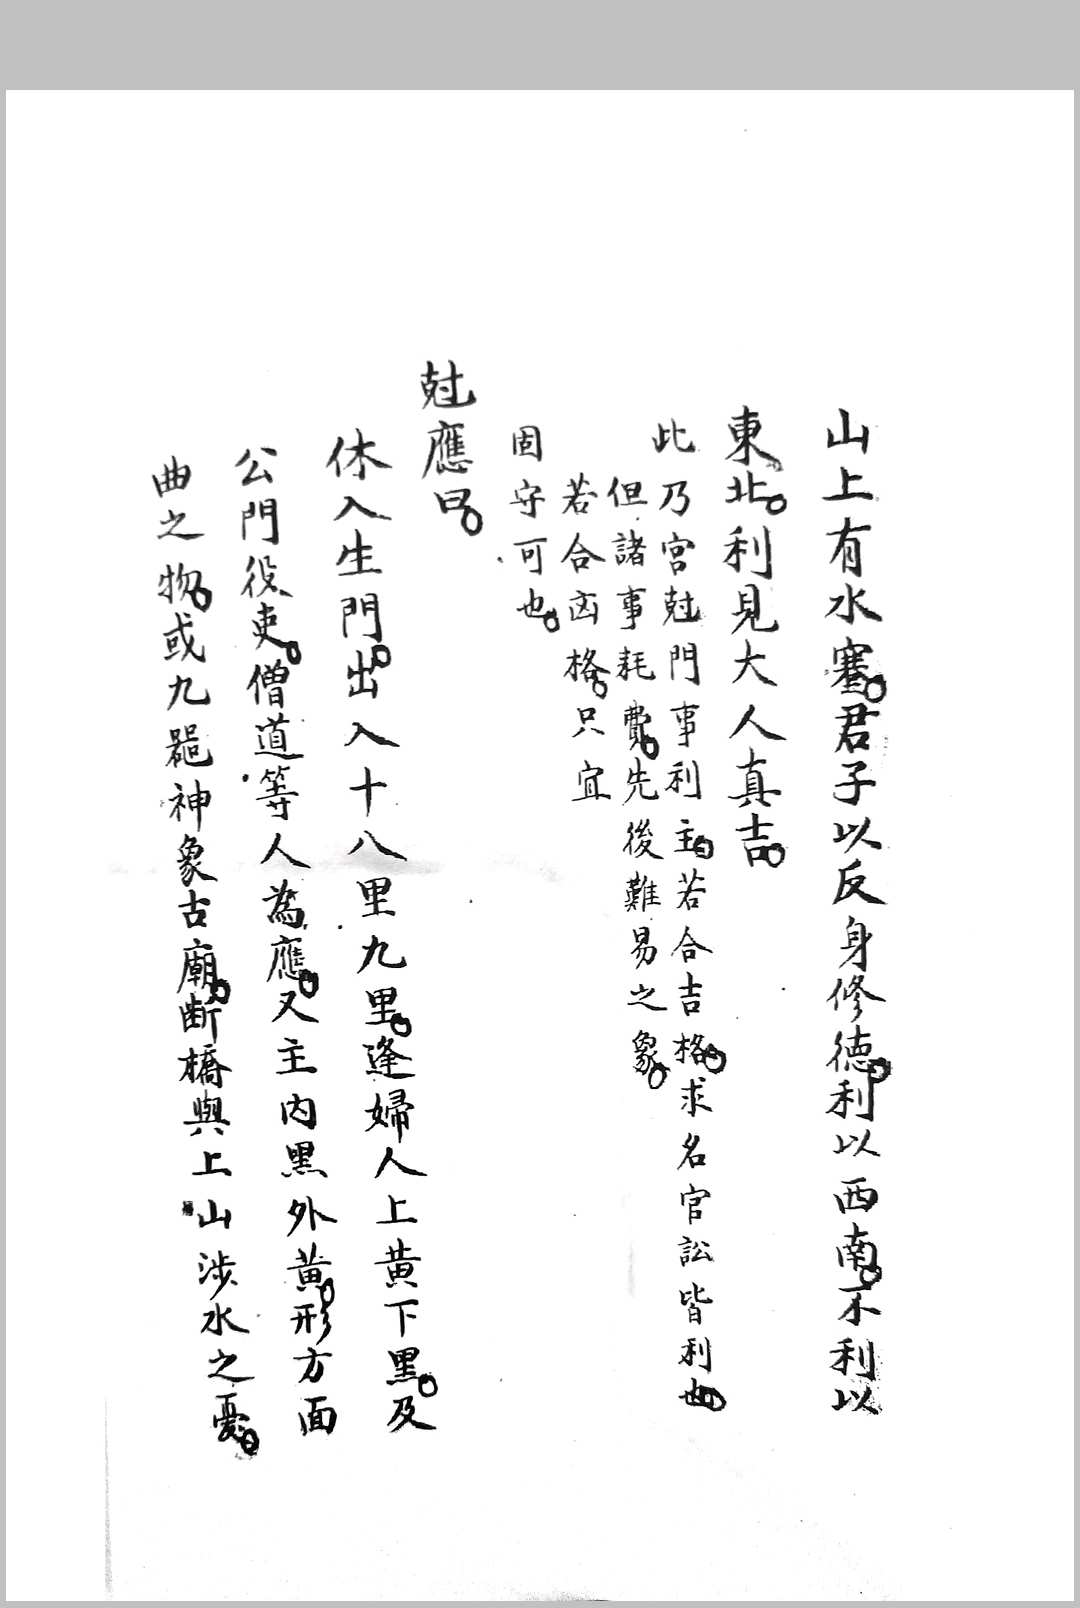 山上有水蹇。君子以反身修德。利以西南。不利以
東北。利見大人真吉。
此乃宮尅門事利主。若合吉格。求名官訟皆利也。
但諸事耗費。先後難易之象。
若合凶格。只宜
固守可也。
尅應曰。
休入生門。出入十八里九里。逢婦人上黄下黑。及
公門役吏。僧道等人為應。又主內黑外黄。形方面
曲之物。或九 神象古廟。断橋與上山涉水之憂。